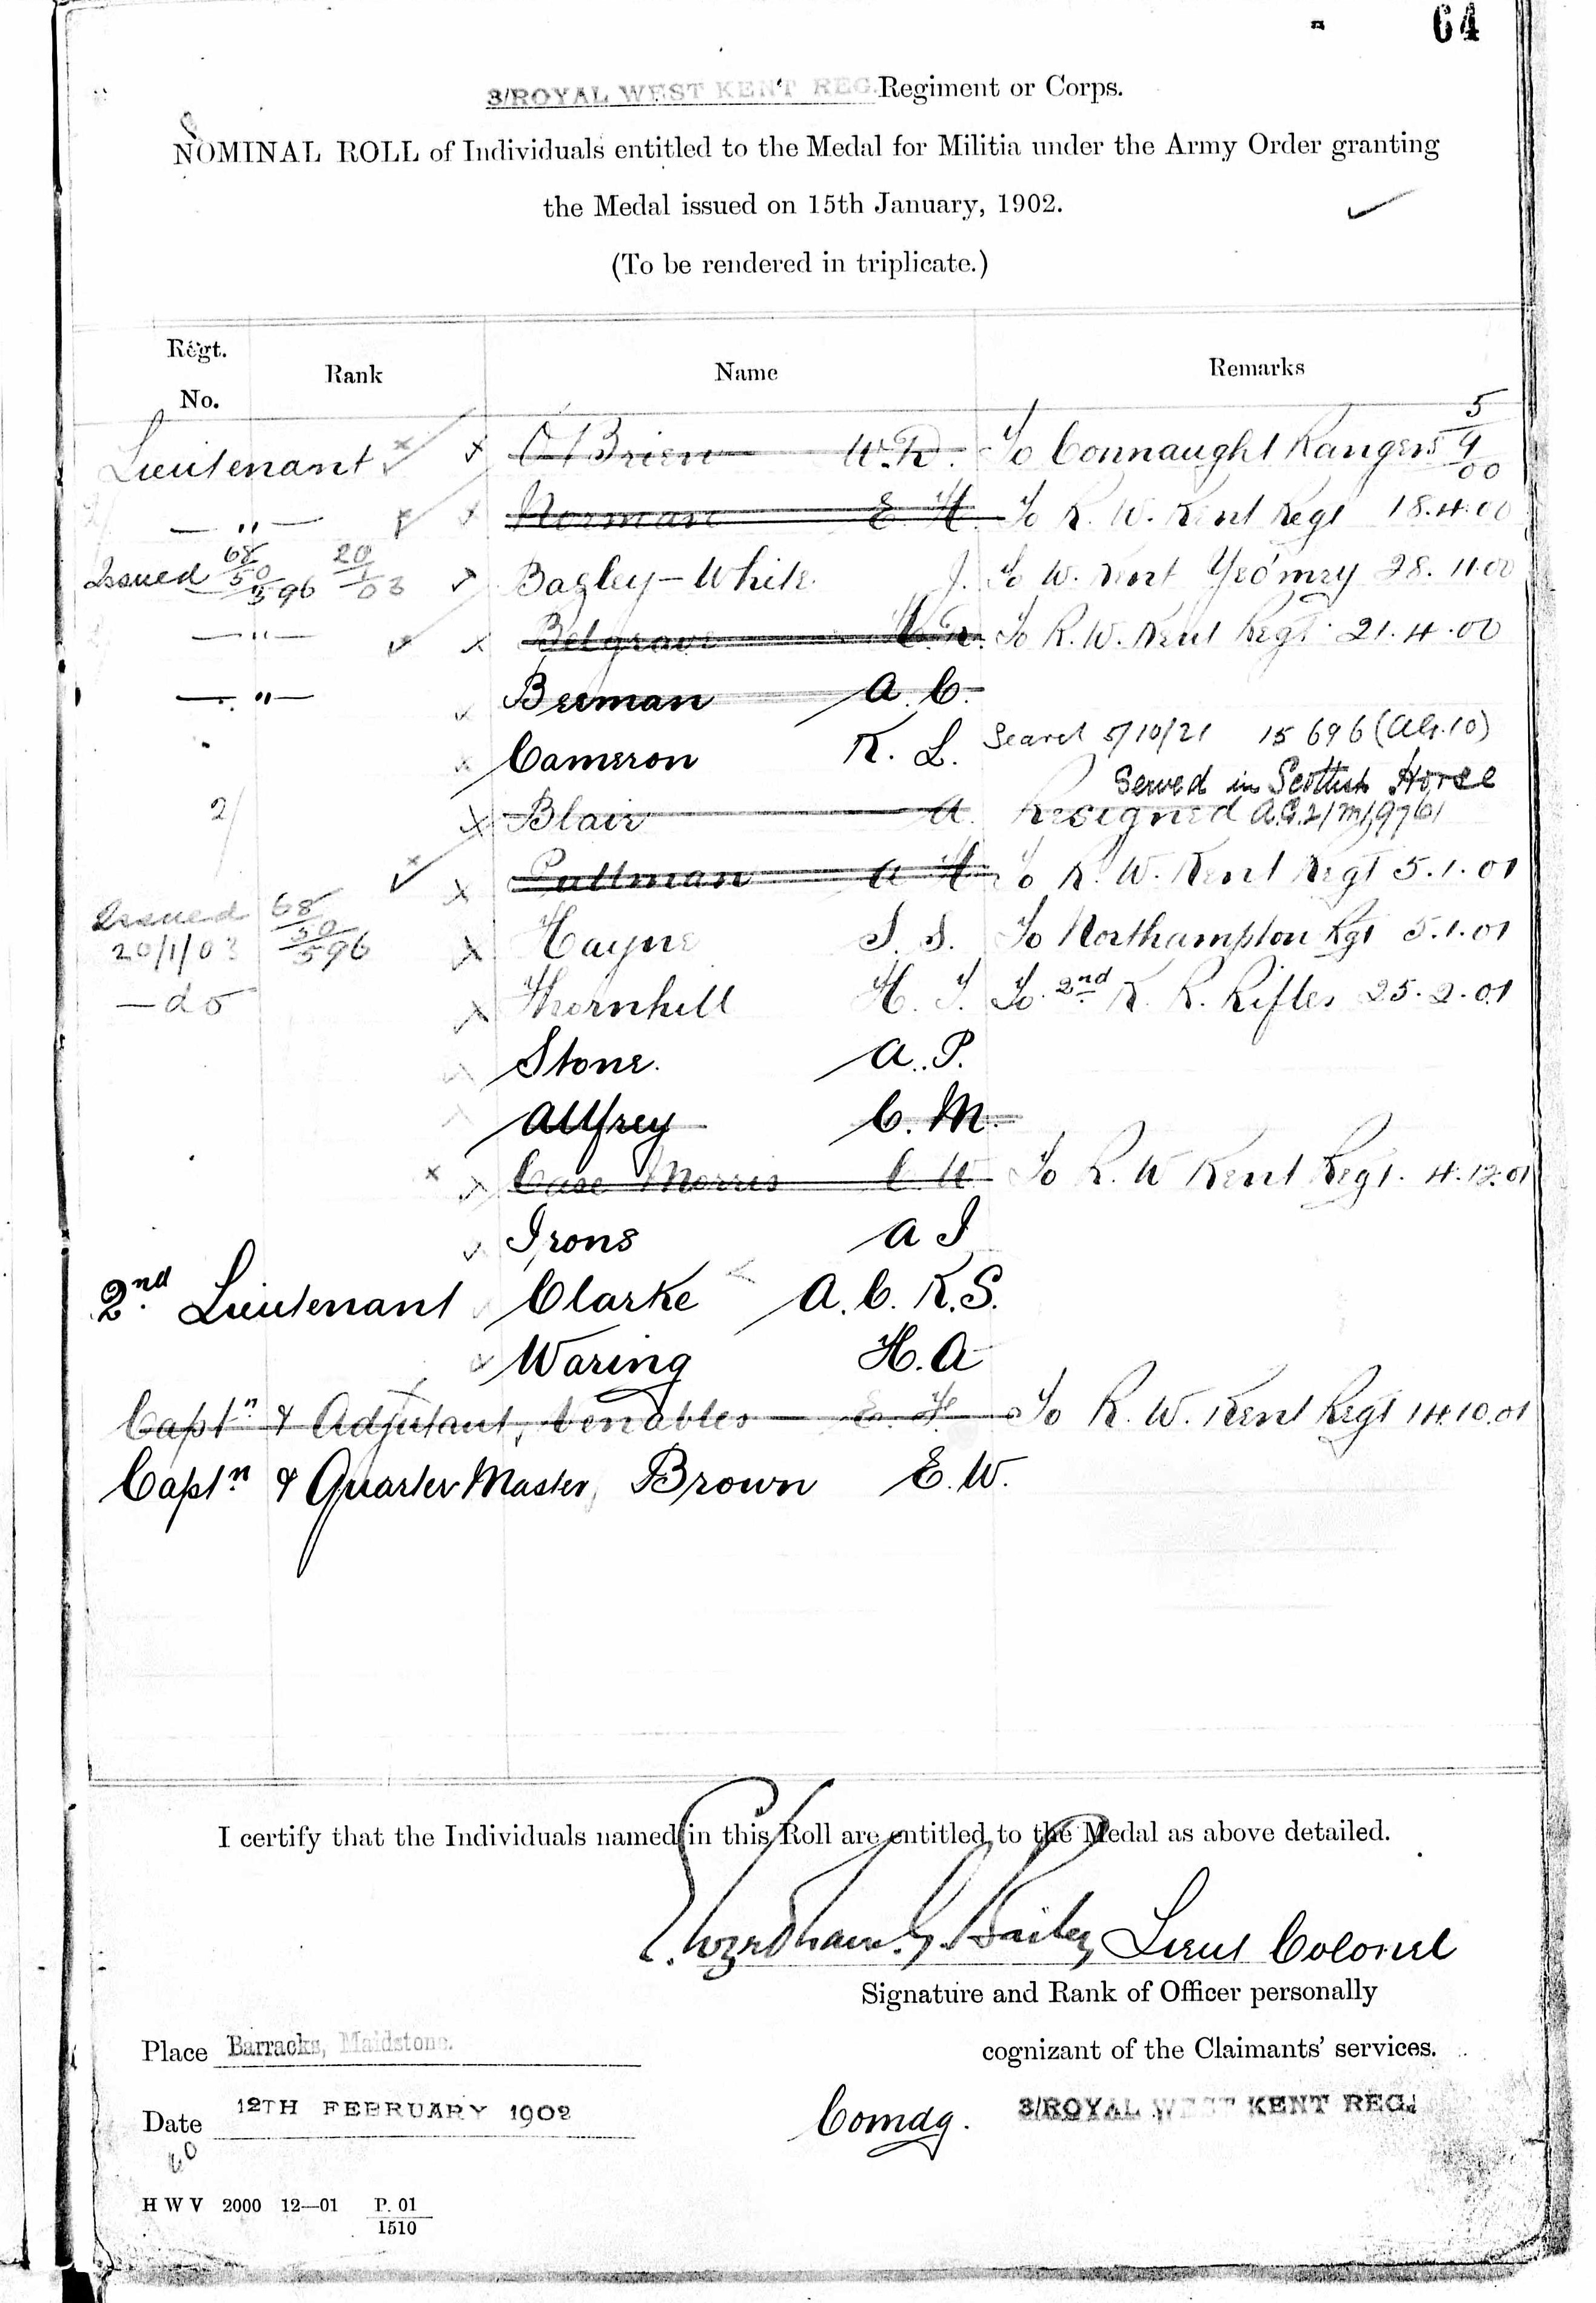 64
3/ROYAL WEST KENT REG. Regiment or Corps.
NOMINAL ROLL of Individuals entitled to the Medal for Militia under the Army Order granting
the Medal issued on 15th January, 1902.
(To be rendered in triplicate.)
Regt. No. Rank Name Remarks
Lieutenant O'Brien W.D. To Connaught Rangers 5/4/00
— " — Norman E. H. To R. W. Kent Regt 18.4.00
Issued 68/50/596 20/1/03 Bazley-White J. To W. Kent Yeo'mry 28.11.00
— " — Belgrave To R. W. Kent Regt 21.4.00
— " — Beeman A. C.
Cameron K. L. Search 5/10/21 15 696 (AG.10)
Served in Scottish Horse
2/ Blair A. Resigned A.G.2/M/9761
Pullman A H To R. W. Kent Regt 5.1.01
Issued 20/1/03 68/50/596 Hayne S. S. To Northampton Rgt 5.1.01
— do Thornhill H. T. To 2nd K. R. Rifles 25.2.01
Stone. A. P.
Allfrey C. M.
Case Morris C W To R. W Kent Regt. 4.12.01
Irons A J
2nd Lieutenant Clarke A. C. K. S.
Waring H. A
Captn & Adjutant, Venables E. F. To R. W. Kent Regt 14.10.01
Captn & QuarterMaster, Brown E. W.
I certify that the Individuals named in this Roll are entitled to the Medal as above detailed.
Lieut Colonel
Signature and Rank of Officer personally
cognizant of the Claimants' services.
Place Barracks, Maidstone.
Date 12TH FEBRUARY 1902
Comdg. 3/ROYAL WEST KENT REG.
60
H W V 2000 12—01 P. 01/1510